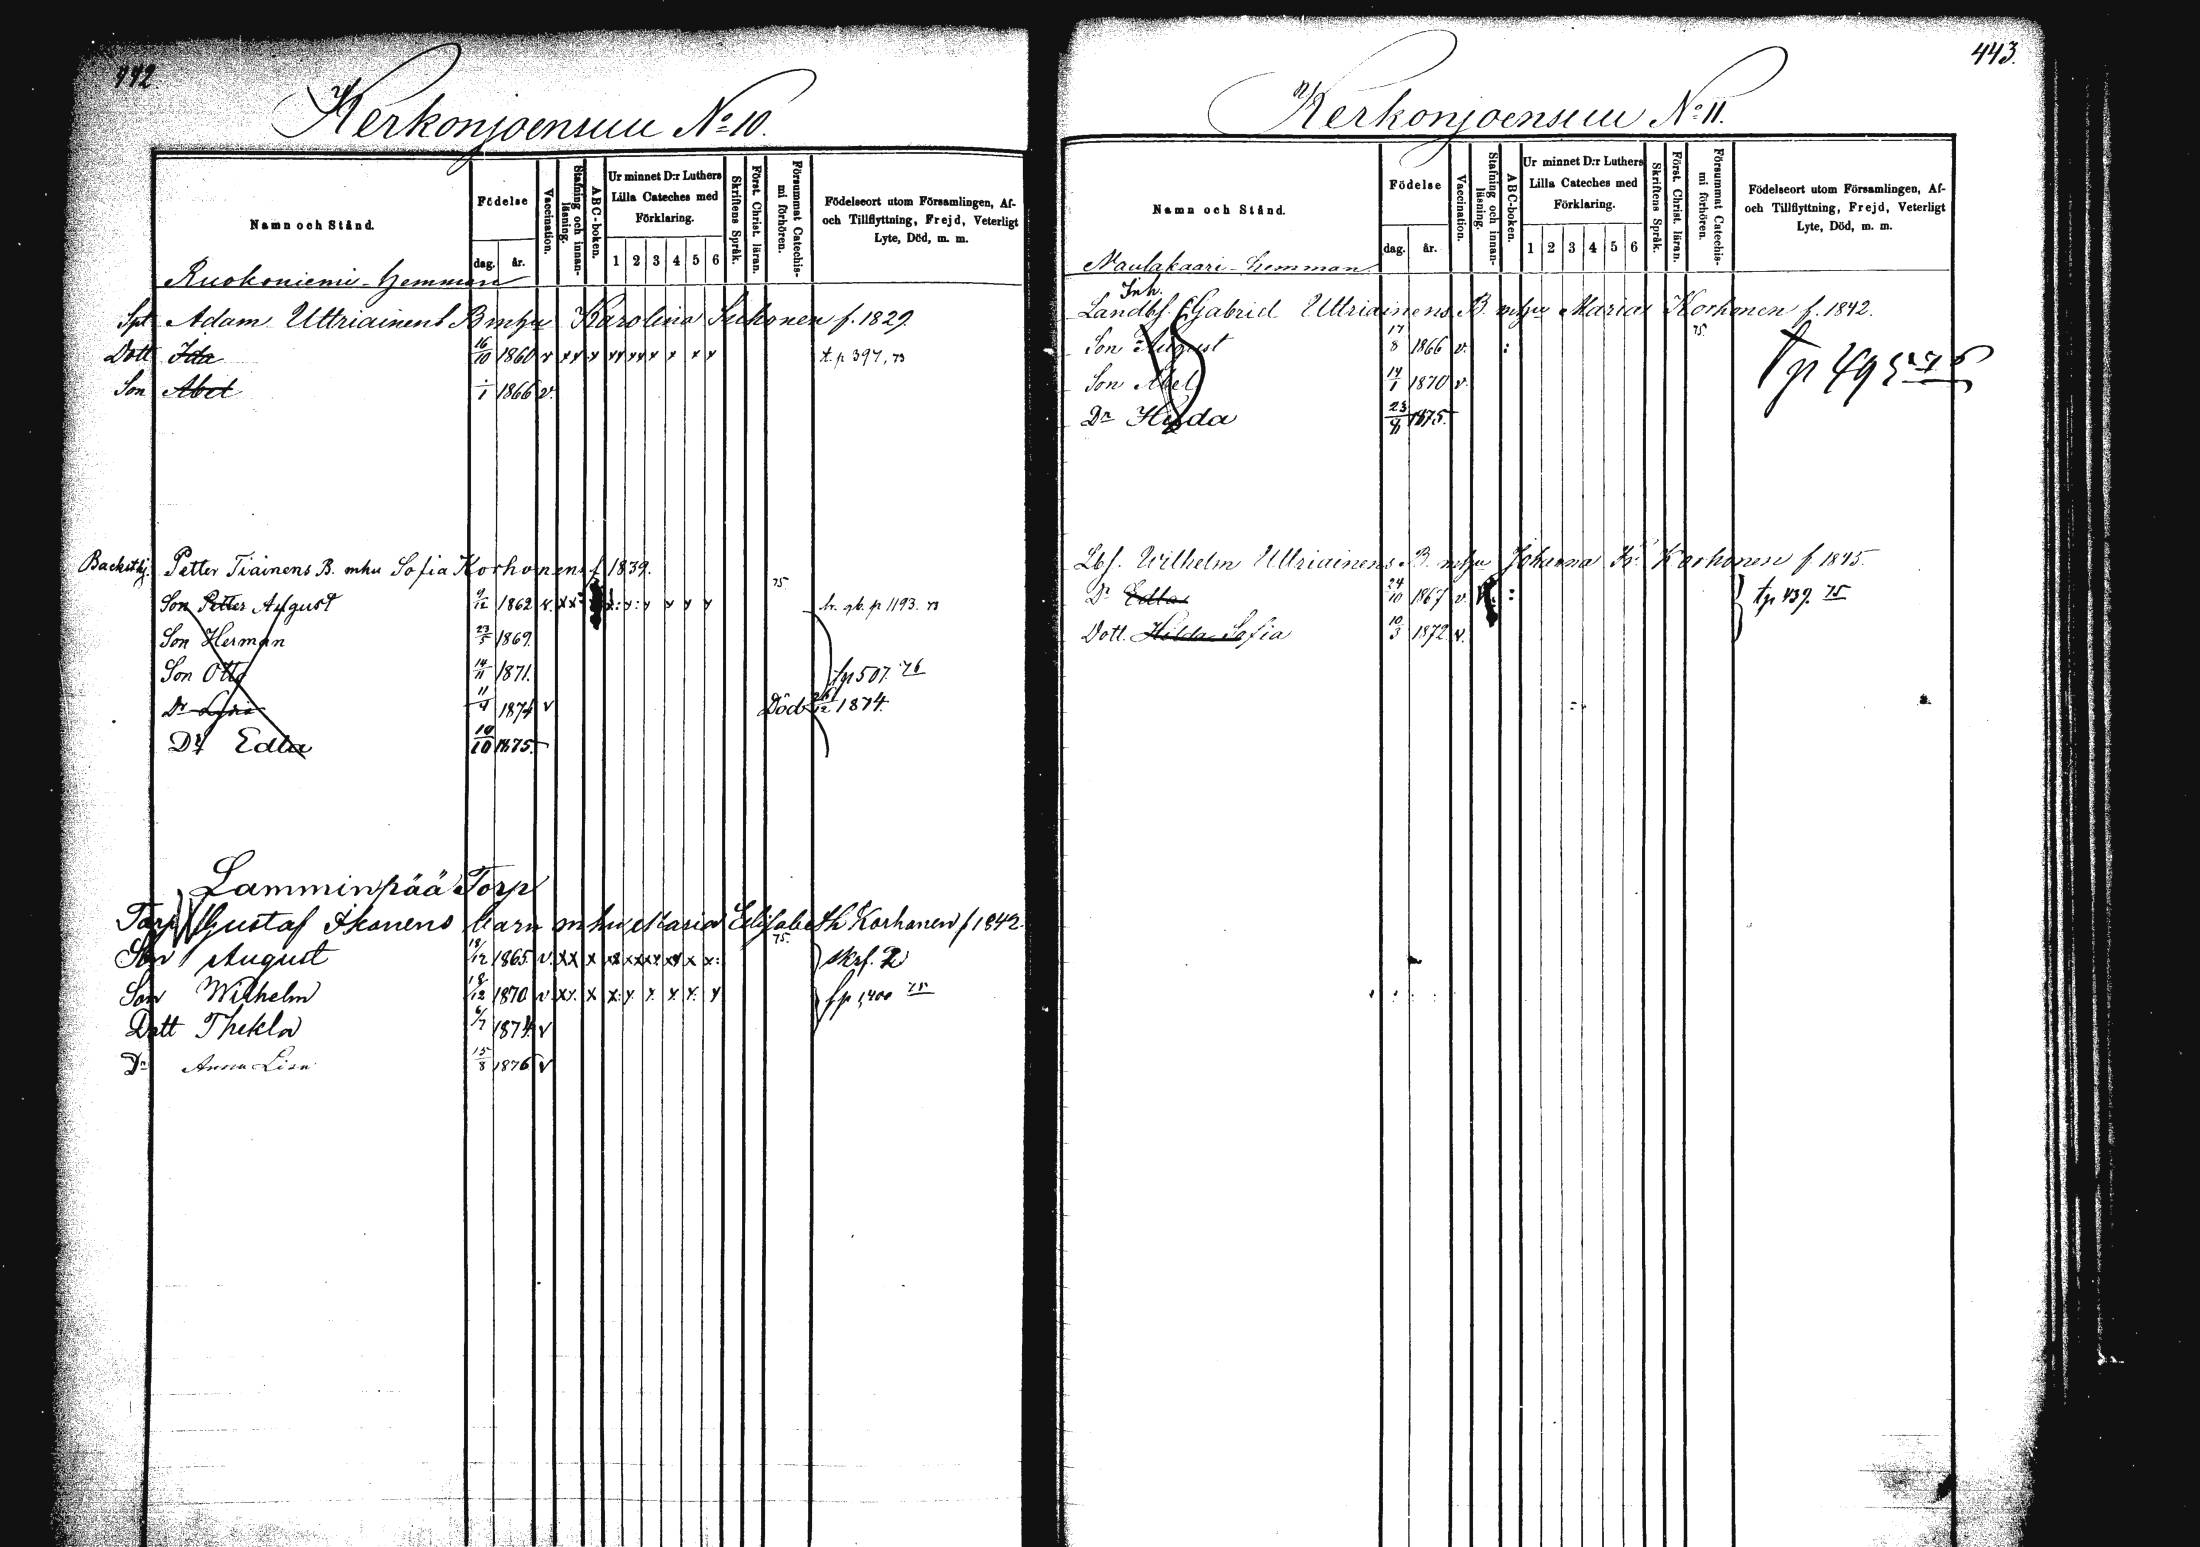 442.
Kerkonjoensuu No 10.
Namn och Stånd.
Födelse
dag.
år.
Vaccination.
Stafning och innan-
läsning.
ABC-boken.
Ur minnet D:r Luthers
Lilla Cateches med
Förklaring.
1 2 3 4 5 6
Skriftens Språk.
Först. Christ. läran.
Försummat Catechis-
mi förhören.
Födelseort utom Församlingen, Af-
och Tillflyttning, Frejd, Veterligt
Lyte, Död, m. m.
Ruokoniemi-hemman
Adam Uttriainens B mhu Karolina f. 1829.
Dott Ida 16/10 1860 v t. p 397, 73
Son Abel 1/1 1866 v.
Petter Tiainens B. mhu Sofia Korhonens f 1839.
75
Son Petter August 9/12 1862 v. p 1193. 73
Son Herman 23/5 1869.
Son Otto 14/11 1871. tp 507. 76
Dr Lydia 11/4 1874 v Död 26/12 1874.
Dr Edla 10/10 1875.
Lamminpää Torp
Torp Gustaf Ikonens barn mhu Maria Elisabeth Korhonen f 1842.
75.
Son August 18/12 1865. v. xx x
Son Wilhelm 18/12 1870 v. 75
Dott Thekla 6/7 1874. v
Dr Anna Lisa 15/8 1876 v
443.
Kerkonjoensuu No 11.
Namn och Stånd.
Födelse
dag.
år.
Vaccination.
Stafning och innan-
läsning.
ABC-boken.
Ur minnet D:r Luthers
Lilla Cateches med
Förklaring.
1 2 3 4 5 6
Skriftens Språk.
Först. Christ. läran.
Försummat Catechis-
mi förhören.
Födelseort utom Församlingen, Af-
och Tillflyttning, Frejd, Veterligt
Lyte, Död, m. m.
Naulakaari-hemman
Inh.
Landbf. Gabriel Uttriainens B. mhu Maria Korhonen f. 1842.
75.
Son August 17/8 1866 v. :
Son Abel 14/1 1870 v.
Dr Hilda 23/8 1875.
Lbf. Wilhelm Uttriainens B mhu Johanna Kr. Korhonen f 1845.
Dr Edla 24/10 1867 v. : tp 439. 75
Dott. Hilda Sofia 10/3 1872 v.